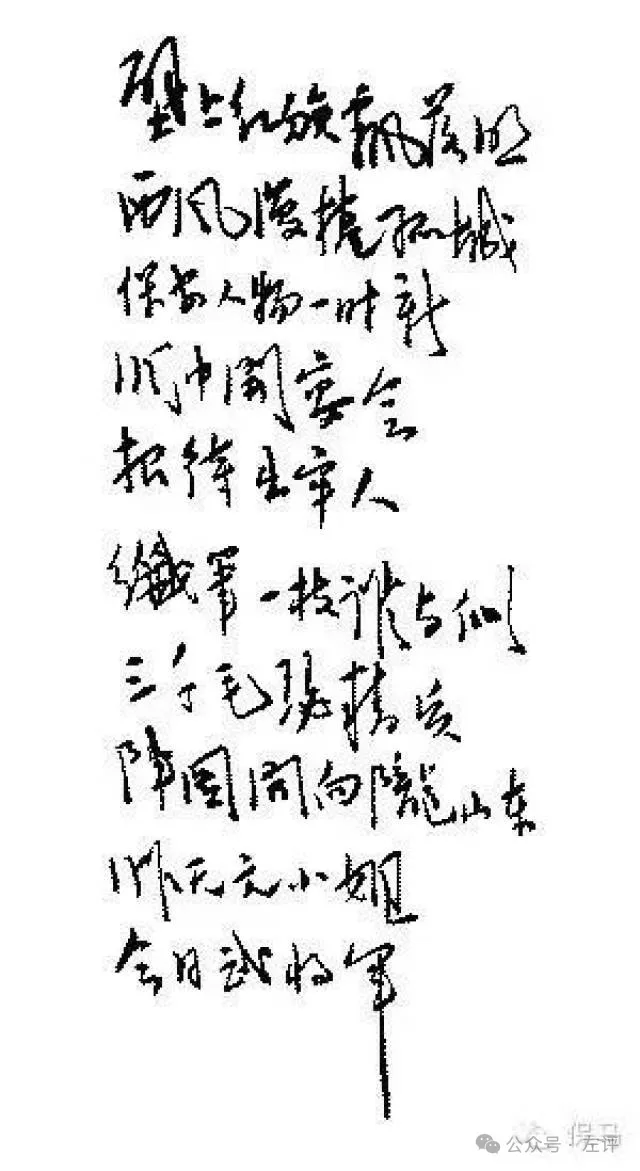 壁上红旗飘落照
西风漫捲孤城
保安人物一时新
洞中開宴会
招待出牢人
纖筆一枝谁与似
三千毛瑟精兵
阵图開向隴山东
昨天文小姐
今日武将军
保马
公众号·左评